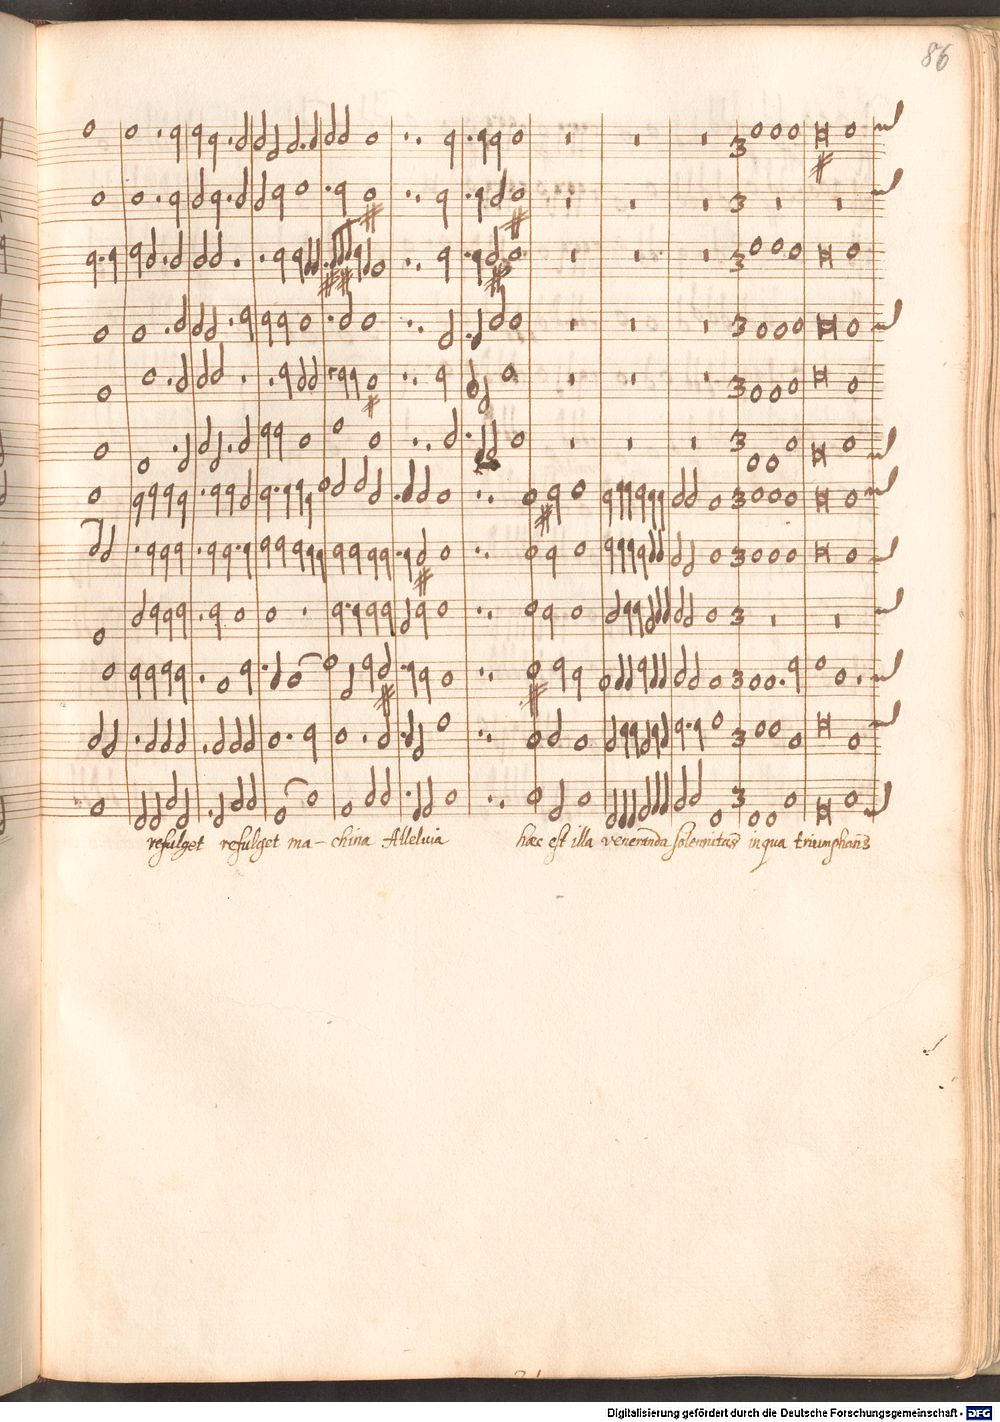 86
refulget refulget ma-china Alleluia hæc est illa veneranda solennitas in qua triumphans
Digitalisierung gefördert durch die Deutsche Forschungsgemeinschaft - DFG